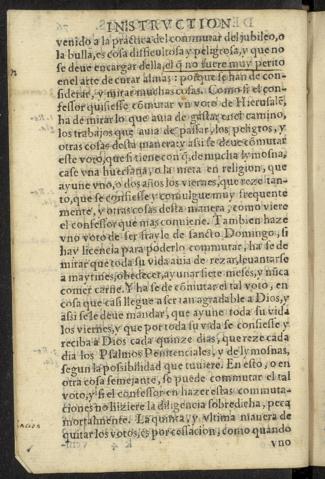 INSTRVCTION
venido a la practica del commutar del jubileo, o
la bulla, es cosa difficultosa y peligrosa, y que no
se deue encargar della, el q̃ no fuere muy perito
en el arte de curar almas: porque se han de con-
siderar, y mirar muchas cosas. Como si el con-
fessor quisiesse cõmutar vn voto de Hierusalẽ,
ha de mirar lo que auia de gastar en el camino,
los trabajos que auia de passar, los peligros, y
otras cosas desta manera: y assi se deue cõmutar
este voto, que si tiene con q̃, de mucha lymosna,
case vna huerfana, o la meta en religion, que
ayune vno, o dos años los viernes, que reze tan-
to, que se confiesse y comulgue muy frequente
mente, y otras cosas desta manera, como viere
el confessor que mas conuiene. Tambien haze
vno voto de ser frayle de sancto Domingo, si
hay licencia para poderlo commutar, ha se de
mirar que toda su vida auia de rezar, leuantarse
a maytines, obedecer, ayunar siete meses, y nũca
comer carne. Y ha se de cõmutar el tal voto, en
cosa que casi llegue a ser tan agradable a Dios, y
assi se le deue mandar, que ayune toda su vida
los viernes, y que por toda su vida se confiesse y
reciba a Dios cada quinze dias, que reze cada
dia los Psalmos Penitenciales, y de lymosnas,
segun la possibilidad que tuuiere. En esto, o en
otra cosa semejante, se puede commutar el tal
voto, y si el confessor en hazer estas commuta-
ciones no hiziere la diligencia sobredicha, peca
mortalmente. La quinta, y vltima manera de
quitar los votos, es por cessacion, como quando
vno